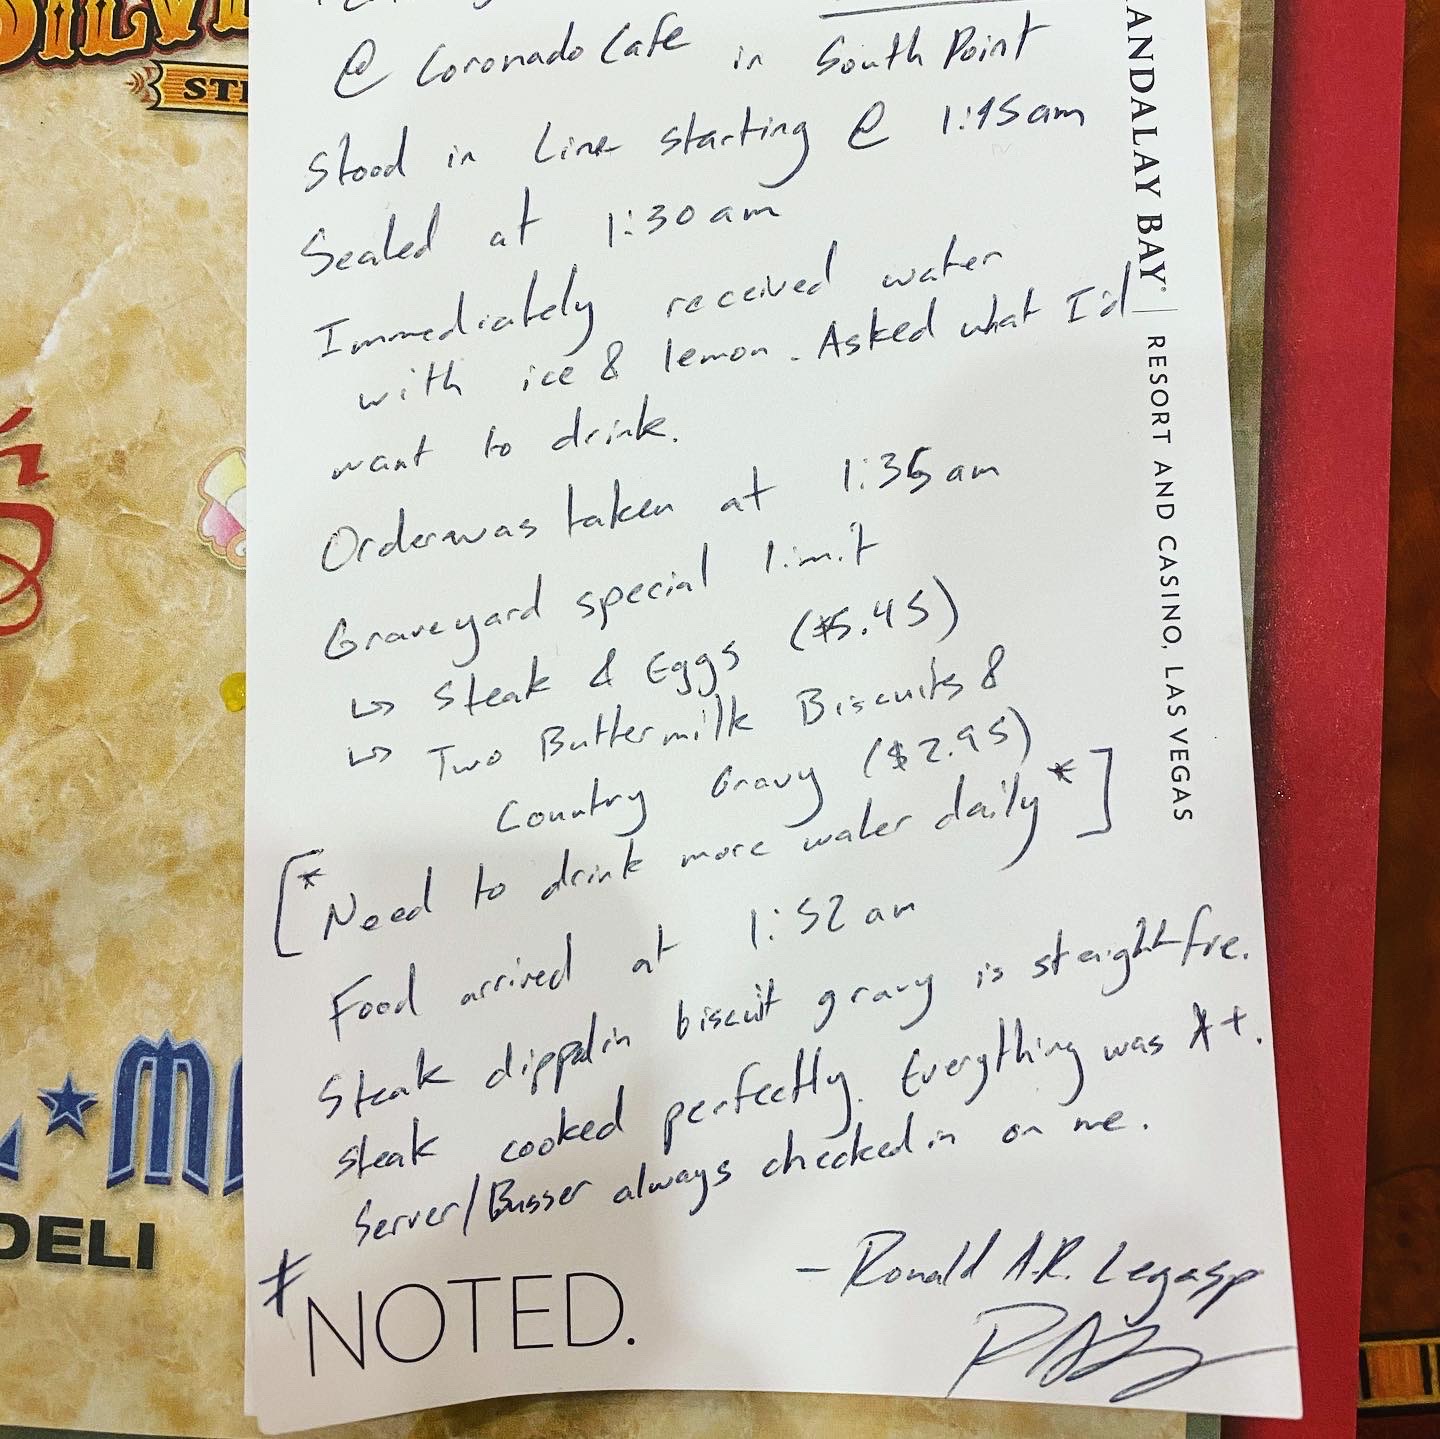 @ Coronado Cafe in South Point
Stood in Line starting @ 1:15am
Seated at 1:30am
Immediately received water
with ice & lemon. Asked what I'd
want to drink.
Order was taken at 1:36am
Graveyard special limit
↳ Steak & Eggs ($5.45)
↳ Two Buttermilk Biscuits &
Country Gravy ($2.95)
[*Need to drink more water daily*]
Food arrived at 1:52am
Steak dipped in biscuit gravy is straight fire.
Steak cooked perfectly. Everything was A+.
Server/Busser always checked in on me.
- Ronald A.R. Legasp
NOTED.
MANDALAY BAY® | RESORT AND CASINO, LAS VEGAS
DELI